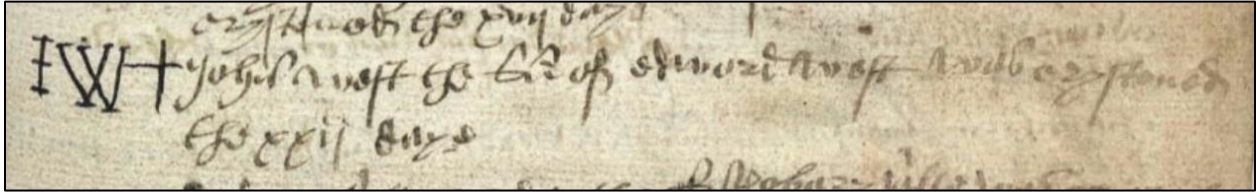 crystened the xvij daye
IW + John a west the Son of edword a west was crystened
the xxij daye